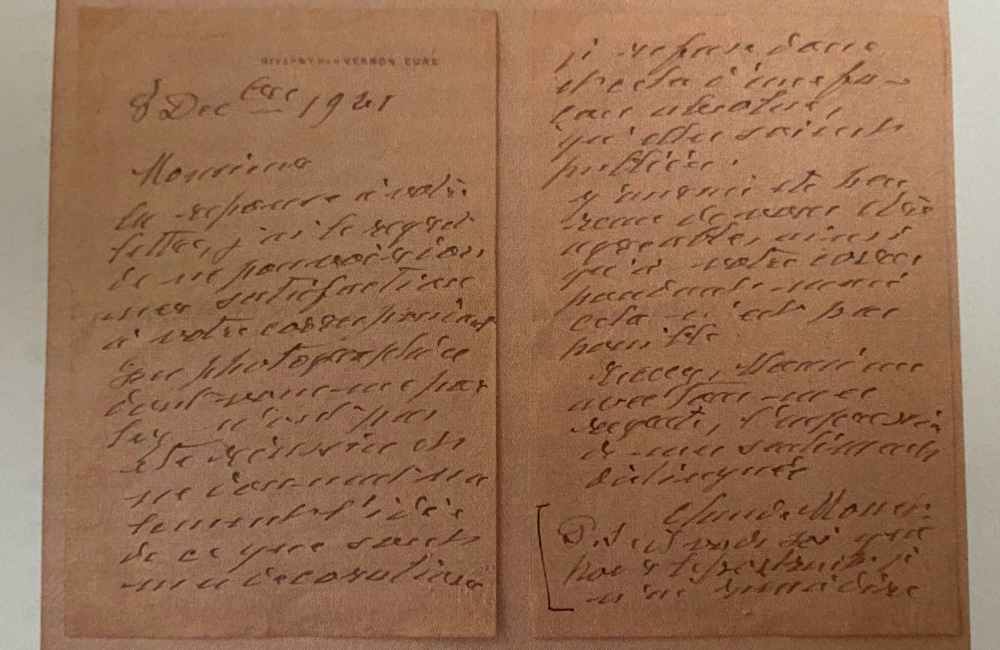 GIVERNY PAR VERNON EURE
8 Dec bre 1921
Monsieur
En reponse à votre
lettre, j'ai le regret
de ne pouvoir donner
satisfaction
à votre correspondant
Les photographies
dont vous me par
lez n'ont pas
été
ne donnent
l'idée
de ce que sont
mes decorations
je refuse donc
et cela d'une fa-
çon absolue,
qu'elles soient
publiées.
de vous être
agreable, ainsi
qu'à votre corres-
pondant mais
cela n'est pas
possible
Monsieur
avec tous mes
regrets, l'expression
de mes sentiments
distingués
Claude Monet
P.S.